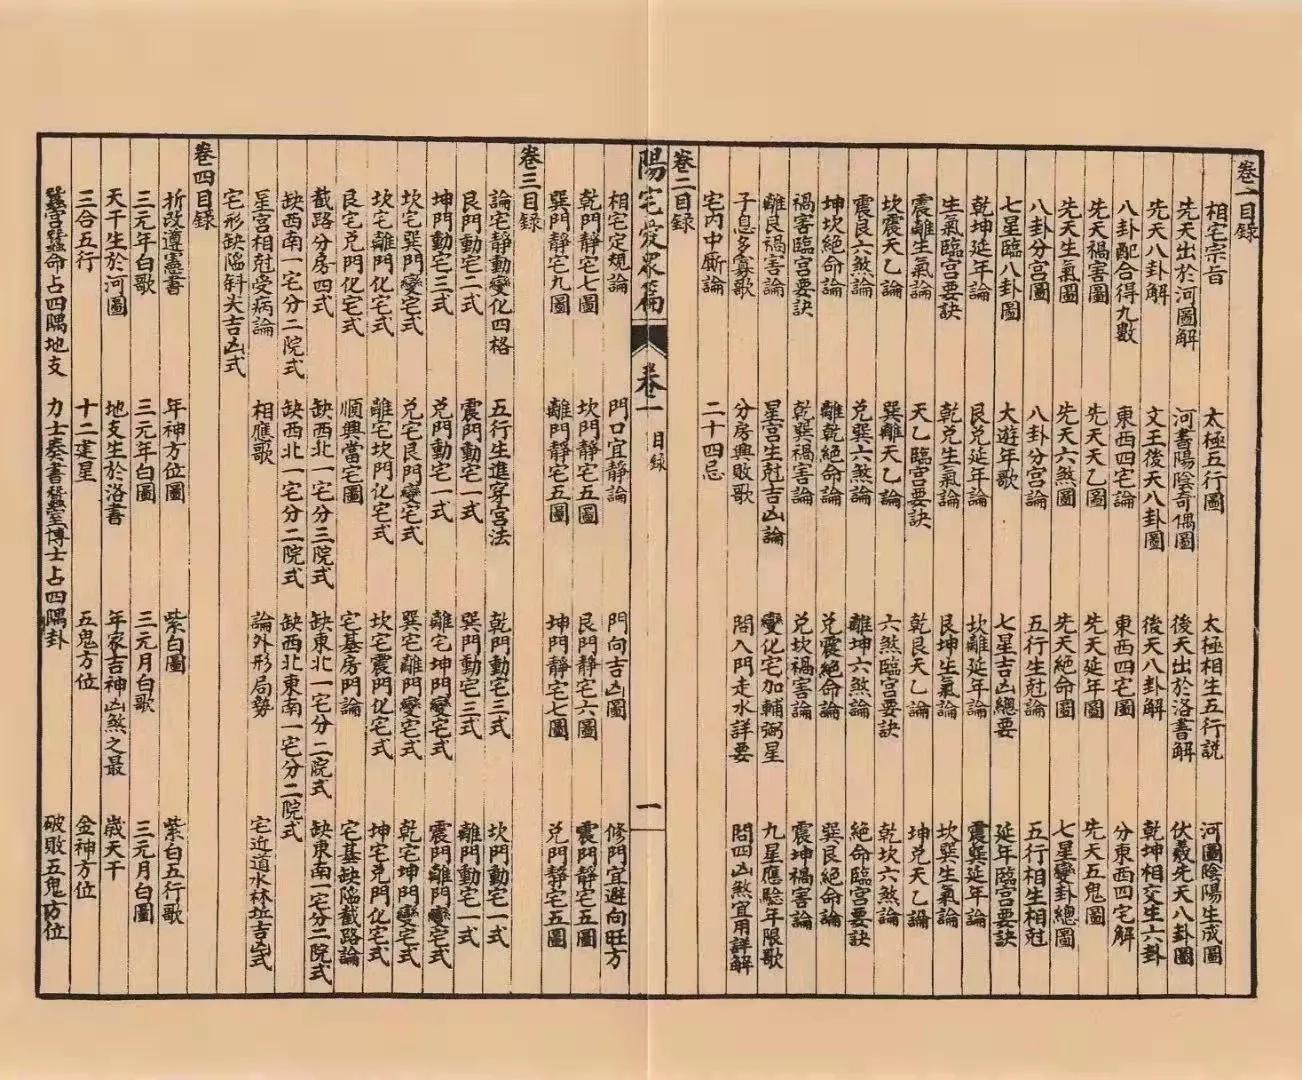 卷一目録
相宅宗旨 太極五行圖 太極相生五行説 河圖陰陽生成圖
先天出於河圖解 河書陽陰奇偶圖 後天出於洛書解 伏羲先天八卦圖
先天八卦解 文王後天八卦圖 後天八卦解 乾坤相交生六卦
八卦配合得九數 東西四宅論 東西四宅圖 分東西四宅解
先天禍害圖 先天天乙圖 先天延年圖 先天五鬼圖
先天生氣圖 先天六煞圖 先天絶命圖 七星變卦總圖
八卦分宮圖 八卦分宮論 五行生尅論 五行相生相尅
七星臨八卦圖 大遊年歌 七星吉凶總要 延年臨宮要訣
乾坤延年論 艮兑延年論 坎離延年論 震巽延年論
生氣臨宮要訣 乾兑生氣論 艮坤生氣論 坎巽生氣論
震離生氣論 天乙臨宮要訣 乾艮天乙論 坤兑天乙論
坎震天乙論 巽離天乙論 六煞臨宮要訣 乾坎六煞論
震艮六煞論 兑巽六煞論 離坤六煞論 絶命臨宮要訣
坤坎絶命論 離乾絶命論 兑震絶命論 巽艮絶命論
禍害臨宮要訣 乾巽禍害論 兑坎禍害論 震坤禍害論
離艮禍害論 星宮生尅吉凶論 變化宅加輔弼星 九星應驗年限歌
子息多寡歌 分房興敗歌 問入門走水詳要 問四凶煞宜用詳解
宅内中廝論 二十四忌
卷二目録
陽宅愛衆篇 卷一 目録 一
相宅定規論 門口宜靜論 門向吉凶圖 修門宜避向旺方
乾門靜宅七圖 坎門靜宅五圖 艮門靜宅六圖 震門靜宅五圖
巽門靜宅九圖 離門靜宅五圖 坤門靜宅七圖 兑門靜宅五圖
卷三目録
論宅靜動變化四格 五行生進穿宮法 乾門動宅三式 坎門動宅一式
艮門動宅二式 震門動宅一式 巽門動宅三式 離門動宅一式
坤門動宅三式 兑門動宅一式 離宅坤門變宅式 震門離門變宅式
坎宅巽門變宅式 兑宅艮門變宅式 巽宅離門變宅式 乾宅坤門變宅式
坎宅離門化宅式 離宅坎門化宅式 坎宅震門化宅式 坤宅兑門化宅式
艮宅兑門化宅式 順興當宅圖 宅基房門論 宅基缺陷截路論
截路分房四式 缺西北一宅分三院式 缺東北一宅分二院式 缺東南一宅分二院式
缺西南一宅分二院式 缺西北一宅分二院式 缺西北東南一宅分二院式
星宮相尅受病論 相應歌 論外形局勢 宅近道水林坵吉凶式
宅形缺陷斜尖吉凶式
卷四目録
折改遵憲書 年神方位圖 紫白圖 紫白五行歌
三元年白歌 三元年白圖 三元月白歌 三元月白圖
天干生於河圖 地支生於洛書 年家吉神凶煞之最 歲天干
三合五行 十二建星 五鬼方位 金神方位
蠶宮蠶命占四隅地支 力士奏書蠶室博士占四隅卦 破敗五鬼方位